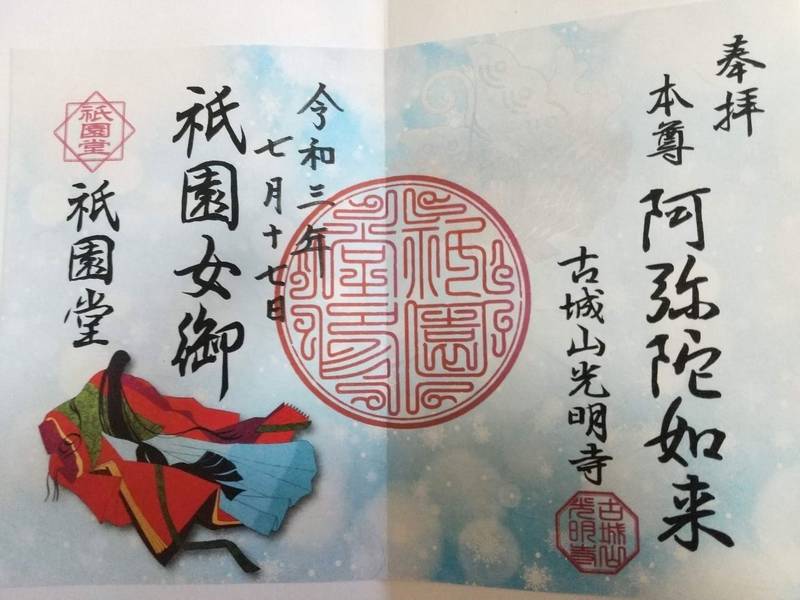 奉拝
本尊
阿弥陀如来
古城山光明寺
古城山
光明寺
令和三年
七月十七日
祇園女御
祇園堂
祇園堂